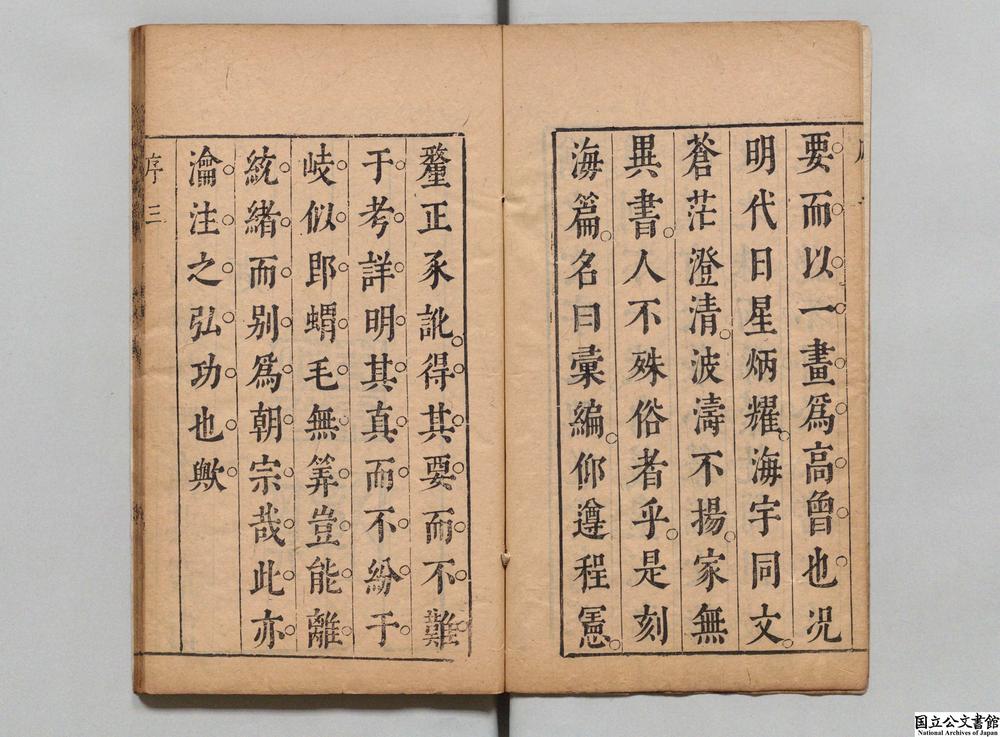 要而以一畫爲高曾也况
明代日星炳耀海宇同文
蒼茫澄清波濤不揚家無
異書人不殊俗者乎是刻
海篇名曰彚編仰遵程憲
釐正豕訛得其要而不難
于考詳明其真而不紛于
岐似即蝟毛無筭豈能離
統緒而别爲朝宗哉此亦
瀹注之弘功也歟
序 三
国立公文書館
National Archives of Japan